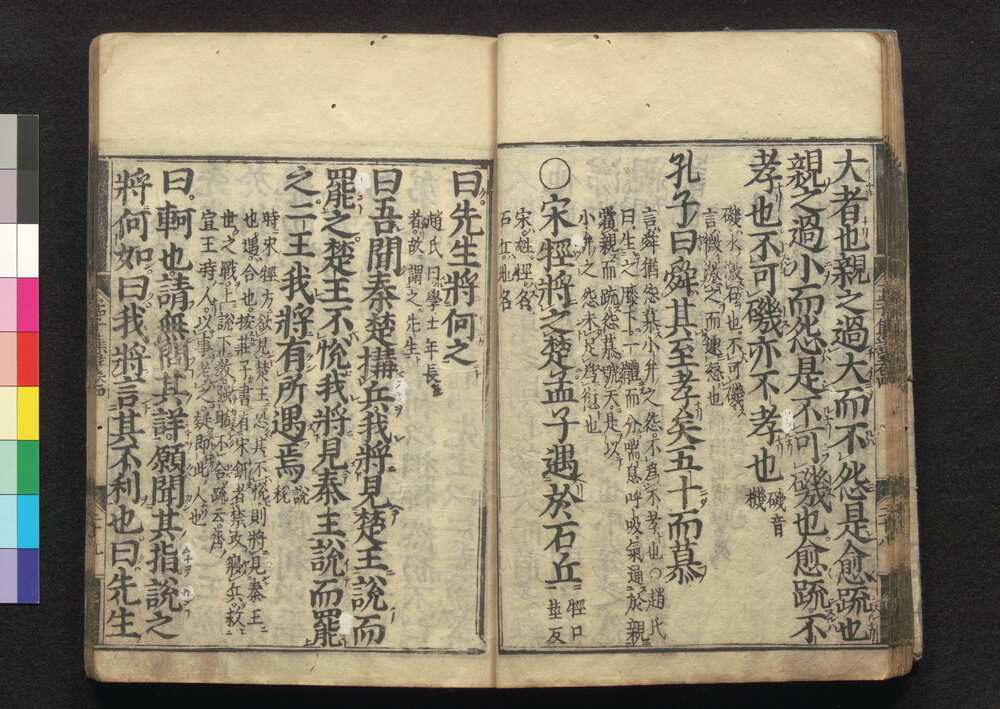 大者也親之過大而不怨是愈疏也
親之過小而怨是不可磯也愈疏不
孝也不可磯亦不孝也磯音機
磯水激石也不可磯
言微激之而遽怒也
孔子曰舜其至孝矣五十而慕
言舜猶怨慕小弁之怨不爲不孝也○趙氏
曰生之膝下一體而分喘息呼吸氣通於親
當親而疏怨慕號天是以
小弁之怨未足爲愆也
○宋牼將之楚孟子遇於石丘牼口莖反
宋姓牼名
石丘地名
曰先生將何之
趙氏曰學士年長
者故謂之先生
曰吾聞秦楚搆兵我將見楚王說而
罷之楚王不悅我將見秦王說而罷
之二王我將有所遇焉說稅
時宋牼方欲見楚王恐其不悅則將見秦王
也遇合也按莊子書有宋鈃者禁攻寢兵救
世之戰上說下教強聒不舍疏云齊
宣王時人以事考之疑即此人也
曰軻也請無問其詳願聞其指說之
將何如曰我將言其不利也曰先生